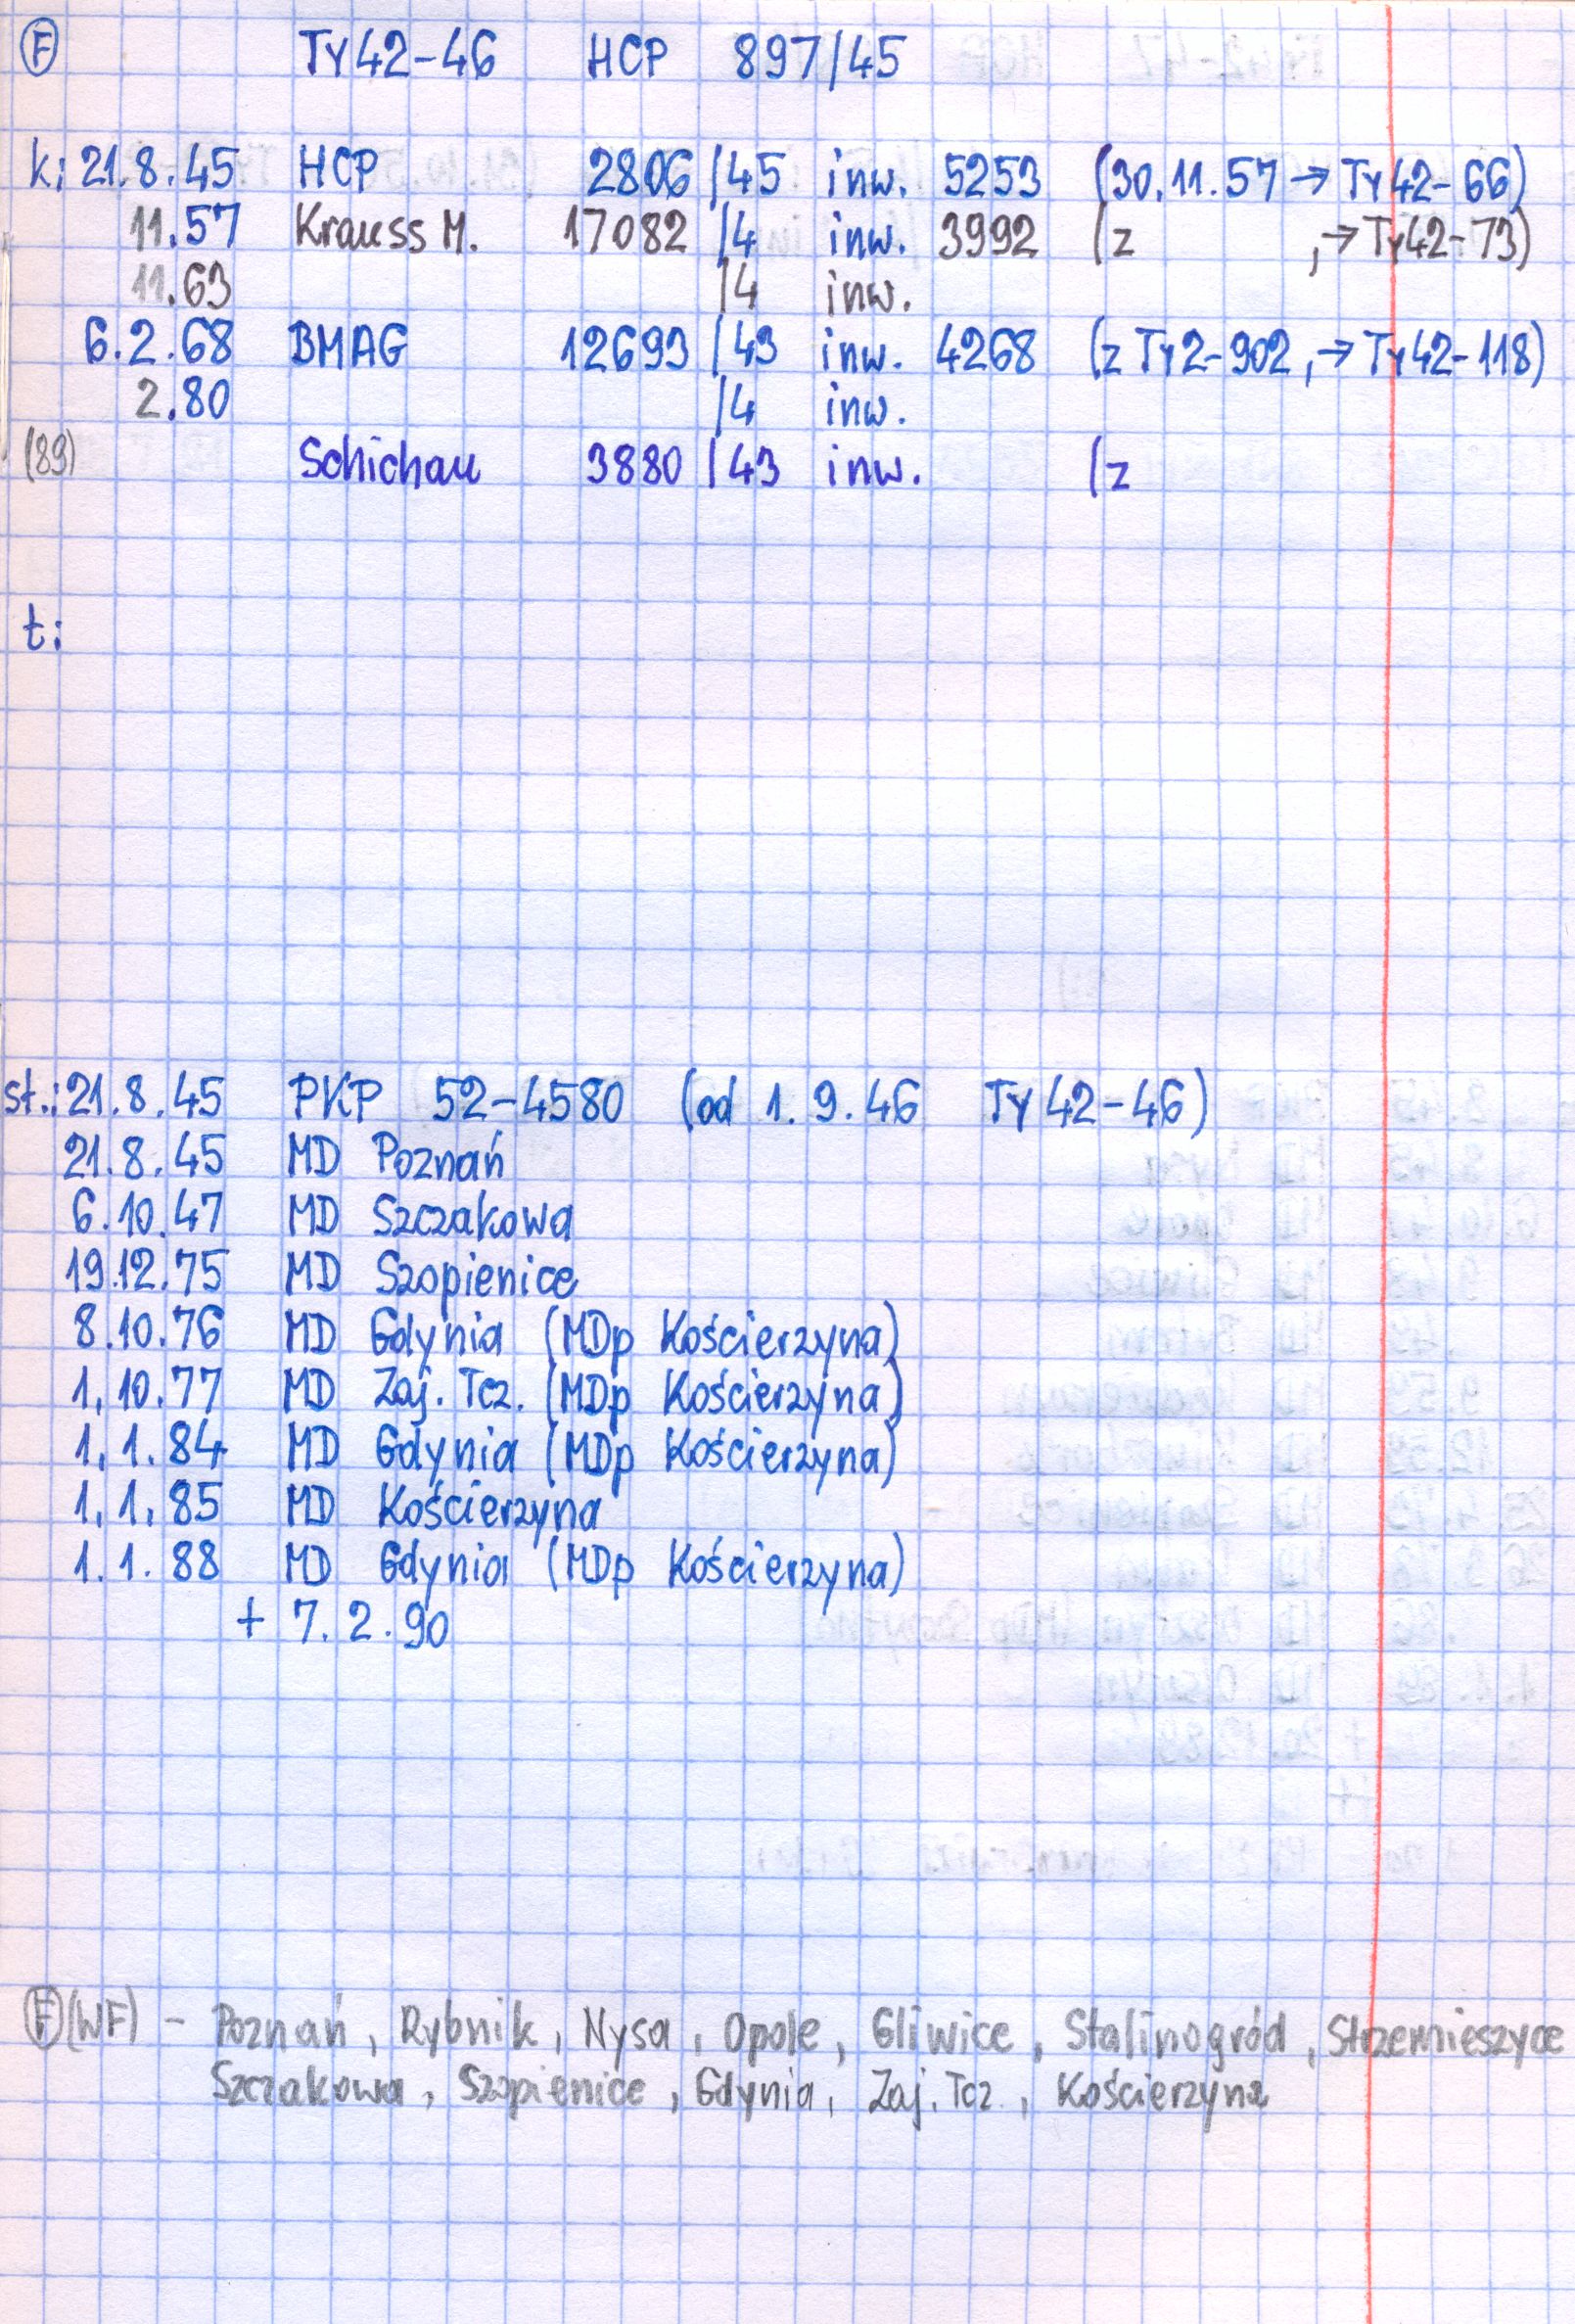 F Ty42-46 HCP 897/45
k: 21.8.45 HCP 2806/45 inw. 5253 (30.11.57 → Ty42-66)
11.57 Krauss M. 17082/4 inw. 3992 (z , → Ty42-73)
11.63 /4 inw.
6.2.68 BMAG 12693/43 inw. 4268 (z Ty2-902, → Ty42-118)
2.80 /4 inw.
(89) Schichau 3880/43 inw. (z
t:
st.: 21.8.45 PKP 52-4580 (od 1.9.46 Ty42-46)
21.8.45 MD Poznań
6.10.47 MD Szczakowa
19.12.75 MD Szopienice
8.10.76 MD Gdynia (MDp Kościerzyna)
1.10.77 MD Zaj. Tcz. (MDp Kościerzyna)
1.1.84 MD Gdynia (MDp Kościerzyna)
1.1.85 MD Kościerzyna
1.1.88 MD Gdynia (MDp Kościerzyna)
+ 7.2.90
F (WF) - Poznań, Rybnik, Nysa, Opole, Gliwice, Stalinogród, Strzemieszyce
Szczakowa, Szopienice, Gdynia, Zaj. Tcz., Kościerzyna